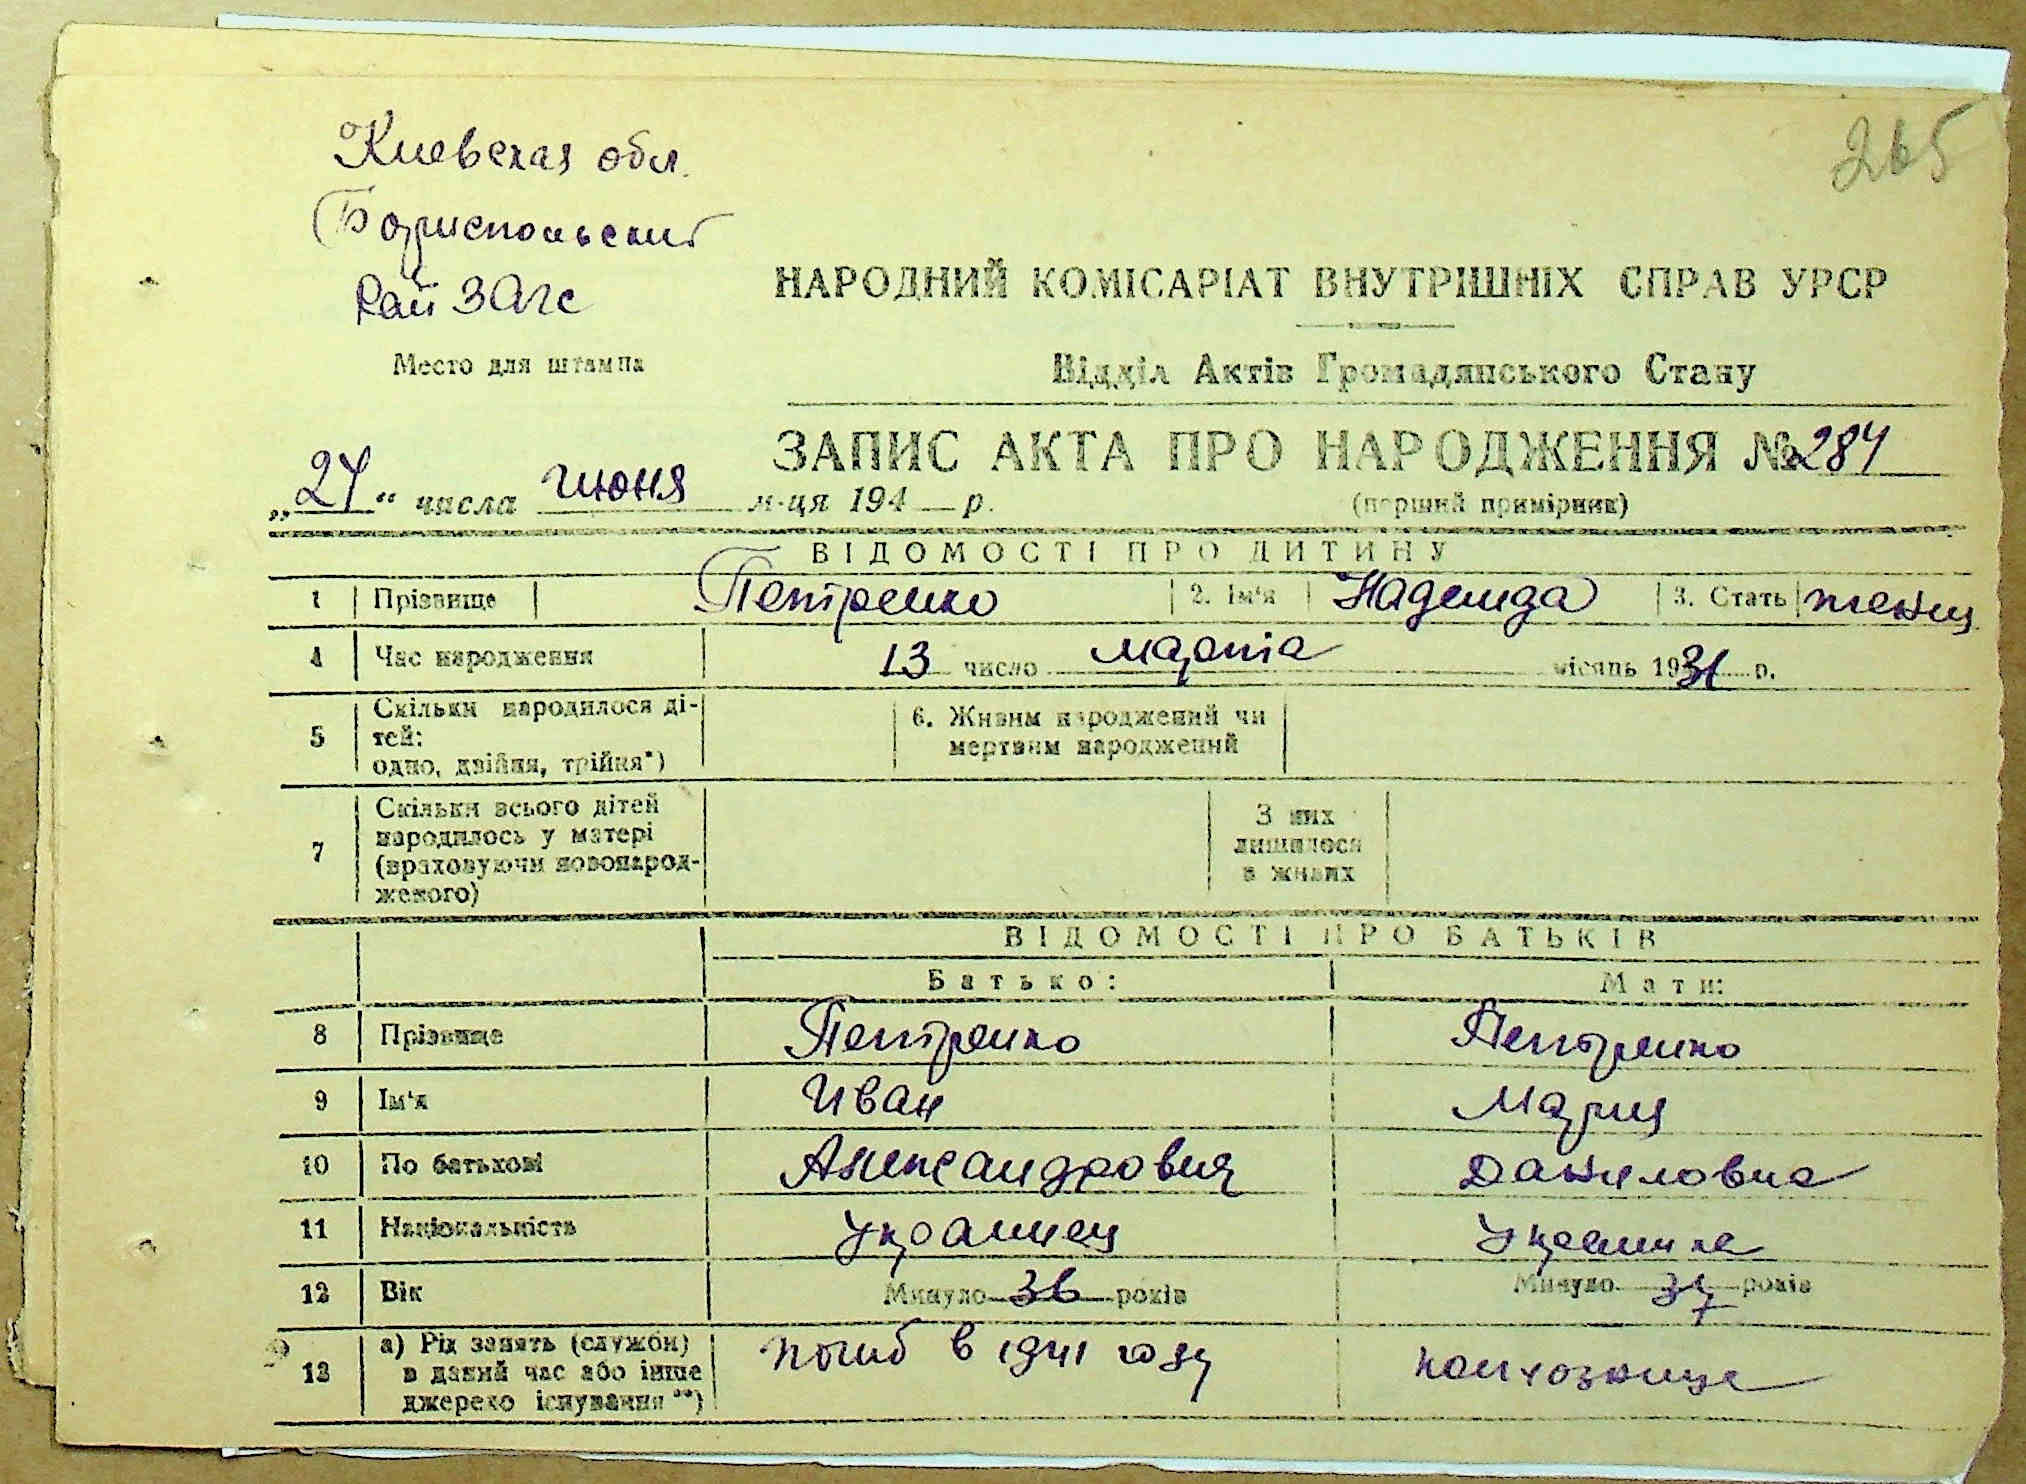 Киевская обл.
265
Бориспольский
Рай ЗАГС
НАРОДНИЙ КОМІСАРІАТ ВНУТРІШНІХ СПРАВ УРСР
Место для штампа
Відділ Актів Громадянського Стану
ЗАПИС АКТА ПРО НАРОДЖЕННЯ № 284
„24“ числа июня м-ця 194 р.
(перший примірник)
ВІДОМОСТІ ПРО ДИТИНУ
1 Прізвище Петренко 2. Ім'я Надежда 3. Стать женщ
4 Час народження 13 число марта місяць 1931 р.
5 Скільки народилося ді-
тей:
одно, двійня, трійня*)
6. Живим народжений чи
мертвим народжений
7 Скільки всього дітей
народилось у матері
(враховуючи новонарод-
женого)
З них
лишилося
в живих
ВІДОМОСТІ ПРО БАТЬКІВ
Батько: Мати:
8 Прізвище Петренко Петренко
9 Ім'я Иван Мария
10 По батькові Александрович Даниловна
11 Національність украинец Украинка
12 Вік Минуло 36 років Минуло 37 років
13 а) Рід занять (служби)
в даний час або інше
джерело існування **)
погиб в 1941 году колхозница